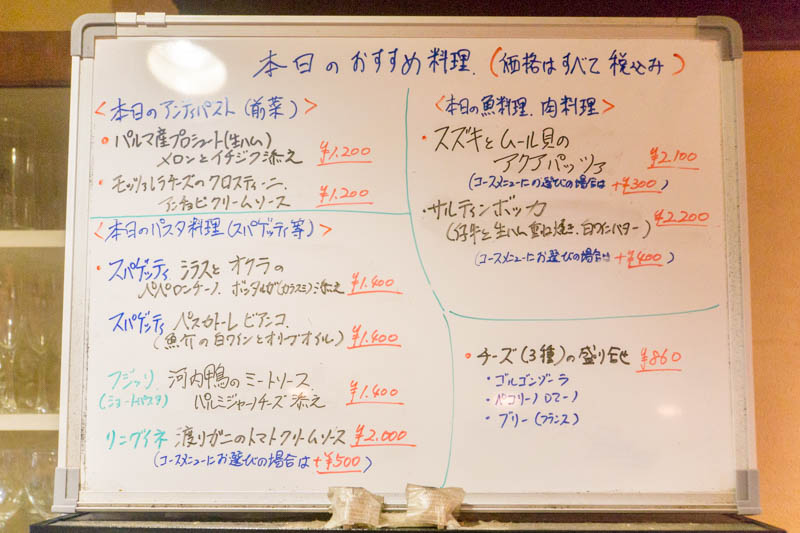 本日のおすすめ料理.(価格はすべて税込み)
<本日のアンティパスト(前菜)>
・パルマ産プロシュート(生ハム)
メロンとイチジク添え ¥1.200
・モッツァレラチーズのクロスティーニ.
アンチョビクリームソース ¥1.200
<本日のパスタ料理(スパゲッティ等)>
・スパゲッティ シラスとオクラの
ペペロンチーノ.ボッタルガ(カラスミ)添え ¥1.400
スパゲッティ ペスカトーレビアンコ.
(魚介の白ワインとオリーブオイル) ¥1.400
フジッリ 河内鴨のミートソース.
(ショートパスタ) パルミジャーノチーズ添え ¥1.400
リングイネ 渡りガニのトマトクリームソース ¥2.000
(コースメニューにお選びの場合は+¥500)
<本日の魚料理.肉料理>
・スズキとムール貝の
アクアパッツァ ¥2.100
(コースメニューにお選びの場合は+¥300)
・サルティンボッカ ¥2.200
(仔牛と生ハム重ね焼き.白ワインバター)
(コースメニューにお選びの場合は+¥400)
・チーズ(3種)の盛り合せ ¥860
・ゴルゴンゾーラ
・ペコリーノロマーノ
・ブリー(フランス)